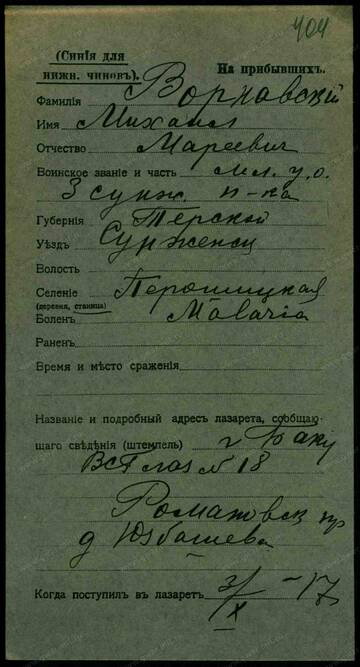 404
(Синія для
нижн. чиновъ).
На прибывшихъ.
Фамилія Ворнавский
Имя Михаил
Отчество Мареевич
Воинское званіе и часть мл. у. о.
3 сунж. п-ка
Губернія Терской
Уѣздъ Сунженск
Волость
Селеніе
(деревня, станица)
Боленъ Malaria
Раненъ
Время и мѣсто сраженія
Названіе и подробный адресъ лазарета, сообщаю-
щаго свѣдѣнія (штемпель) г Баку
ВСГ лаз № 18
Романовск пр
д Юзбашева
Когда поступил въ лазаретъ 3/IX –17